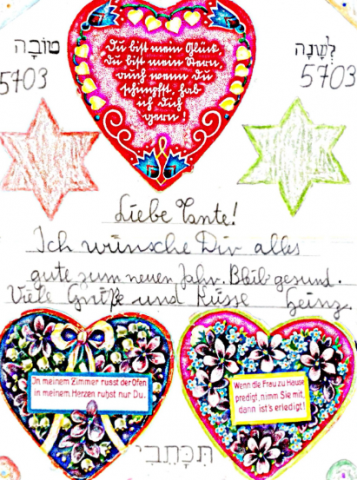 לְשָׁנָה טוֹבָה
5703 5703
Du bist mein Glück,
du bist mein Stern,
auch wenn du
schimpfst, hab
ich Dich
gern!
Liebe Tante!
Ich wünsche Dir alles
gute zum neuen Jahr. Bleib gesund.
Viele Grüße und Küsse Heinz.
In meinem Zimmer russt der Ofen
in meinem Herzen ruhst nur Du.
Wenn die Frau zu Hause
predigt, nimm Sie mit,
dann ist's erledigt!
תִּכָּתֵבִי